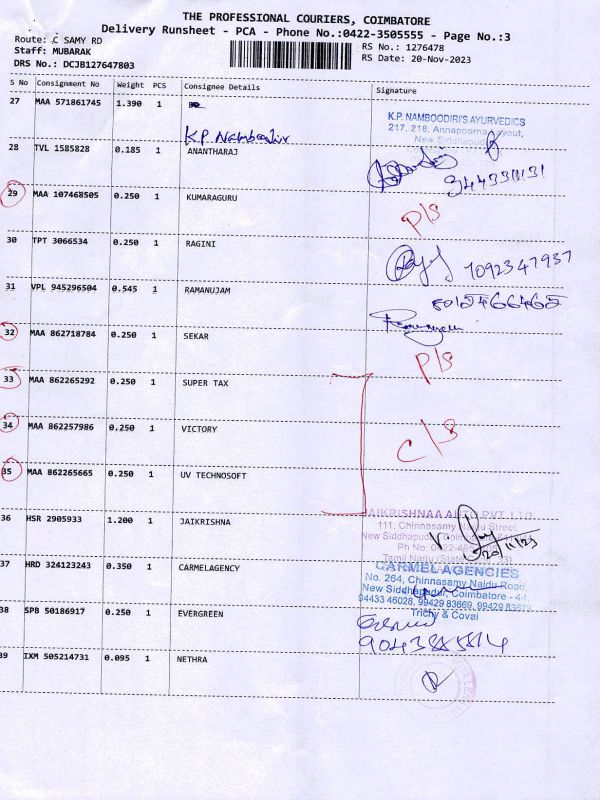 THE PROFESSIONAL COURIERS, COIMBATORE
Delivery Runsheet - PCA - Phone No.:0422-3505555 - Page No.:3
Route: C SAMY RD
Staff: MUBARAK
DRS No.: DCJB127647803
RS No.: 1276478
RS Date: 20-Nov-2023
S No Consignment No Weight PCS Consignee Details Signature
27 MAA 571861745 1.390 1
K.P. Namboodiri
K.P. NAMBOODIRI'S AYURVEDICS
217, 218, Annapoorna Layout,
New Siddhapudur
28 TVL 1585828 0.185 1 ANANTHARAJ
29 MAA 107468505 0.250 1 KUMARAGURU
P/S
30 TPT 3066534 0.250 1 RAGINI
7092347937
31 VPL 945296504 0.545 1 RAMANUJAM
8012466462
32 MAA 862718784 0.250 1 SEKAR
P/S
33 MAA 862265292 0.250 1 SUPER TAX
34 MAA 862257986 0.250 1 VICTORY
C/S
35 MAA 862265665 0.250 1 UV TECHNOSOFT
36 HSR 2905933 1.200 1 JAIKRISHNA
JAIKRISHNAA AUTO PVT LTD
111, Chinnasamy Naidu Street
New Siddhapudur, Coimbatore
Ph No: 0422
Tamil Nadu (State
20/11/23
37 HRD 324123243 0.350 1 CARMELAGENCY
CARMEL AGENCIES
No. 264, Chinnasamy Naidu Road,
New Siddhapudur, Coimbatore - 44
94433 46028, 99429 83669, 99429 83673
Trichy & Covai
38 SPB 50186917 0.250 1 EVERGREEN
39 IXM 505214731 0.095 1 NETHRA